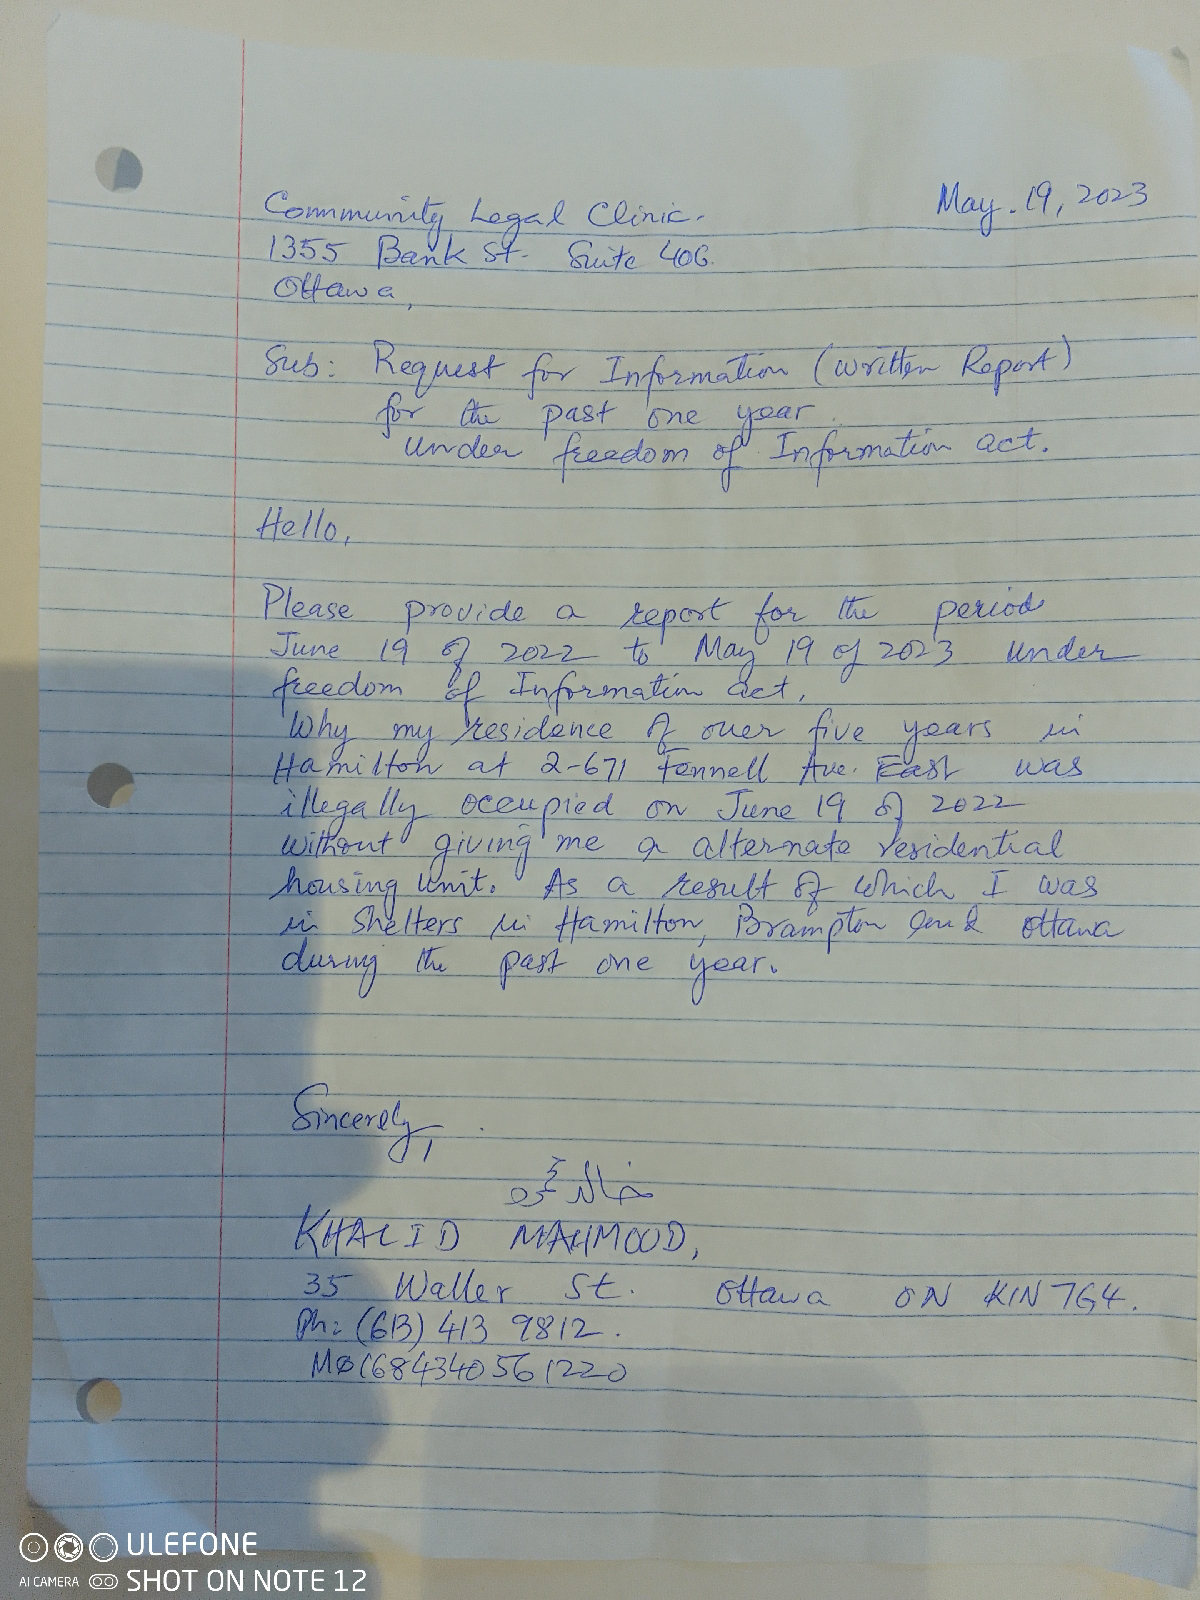 May. 19, 2023
Community Legal Clinic.
1355 Bank St. Suite 406.
Ottawa,
Sub: Request for Information (written Report)
for the past one year
under freedom of Information act.
Hello,
Please provide a report for the period
June 19 of 2022 to May 19 of 2023 under
freedom of Information act.
Why my residence of over five years in
Hamilton at 2-671 Fennell Ave. East was
illegally occupied on June 19 of 2022
without giving me a alternate residential
housing unit. As a result of which I was
in shelters in Hamilton, Brampton and ottawa
during the past one year.
Sincerely,
خالد محمود
KHALID MAHMOOD,
35 Waller St. Ottawa ON K1N 7G4.
Ph: (613) 413 9812.
ULEFONE
AI CAMERA SHOT ON NOTE 12